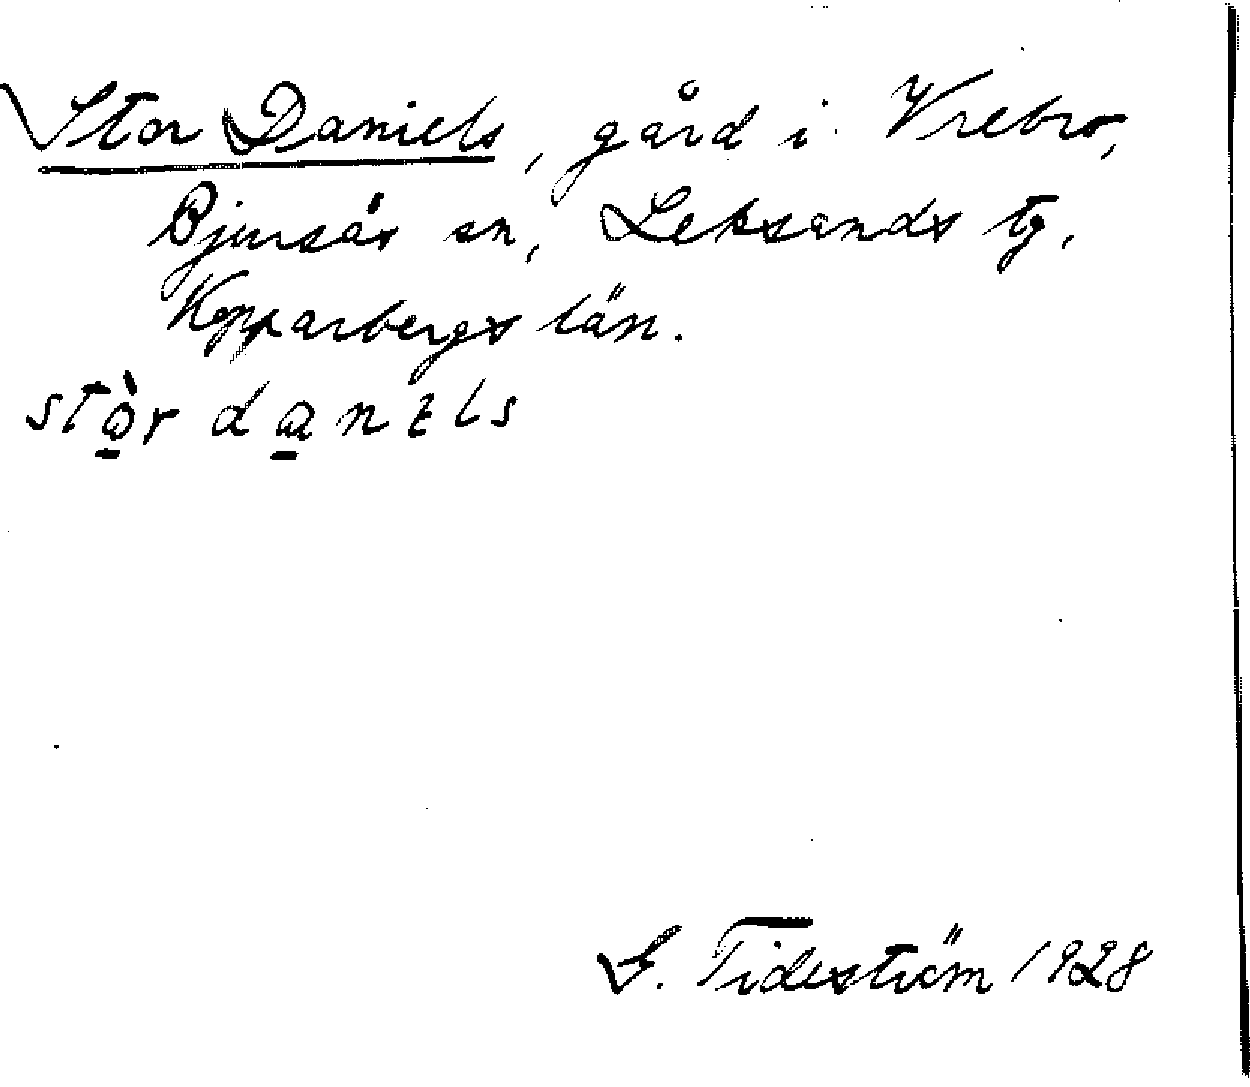 Stor Daniels, gård i Vrebro,
Bjursås sn, Leksands tg,
Kopparbergs län.
stòr danɛls
G. Tideström 1928